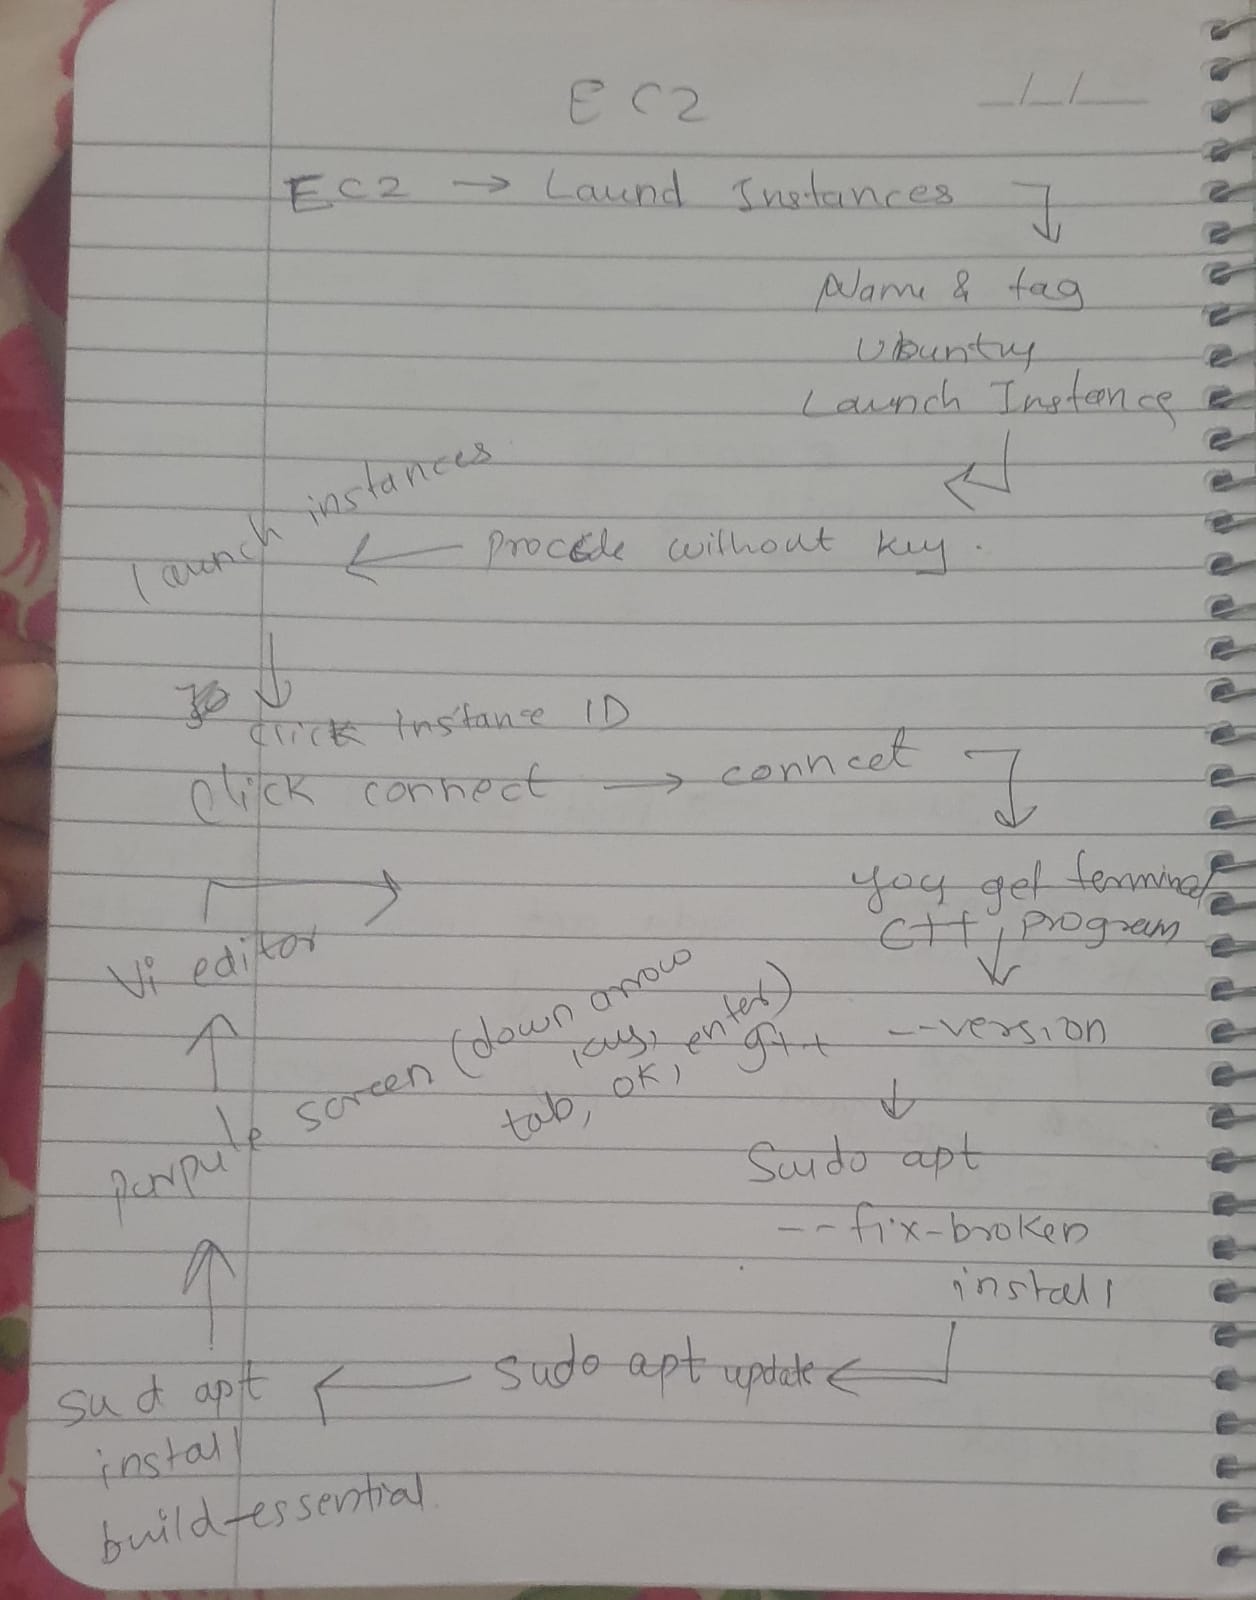 EC2
EC2 → Laund Instances
Name & tag
Ubuntuy
Launch Instance
procede without key.
launch instances
click instance ID
click connect → conncet
you get terminal
C++, program
g++ --version
Sudo apt
--fix-broken
install
sudo apt update
sud apt
install
build-essential
purpule screen (down arrow
keys, enter)
tab, ok,
Vi editor